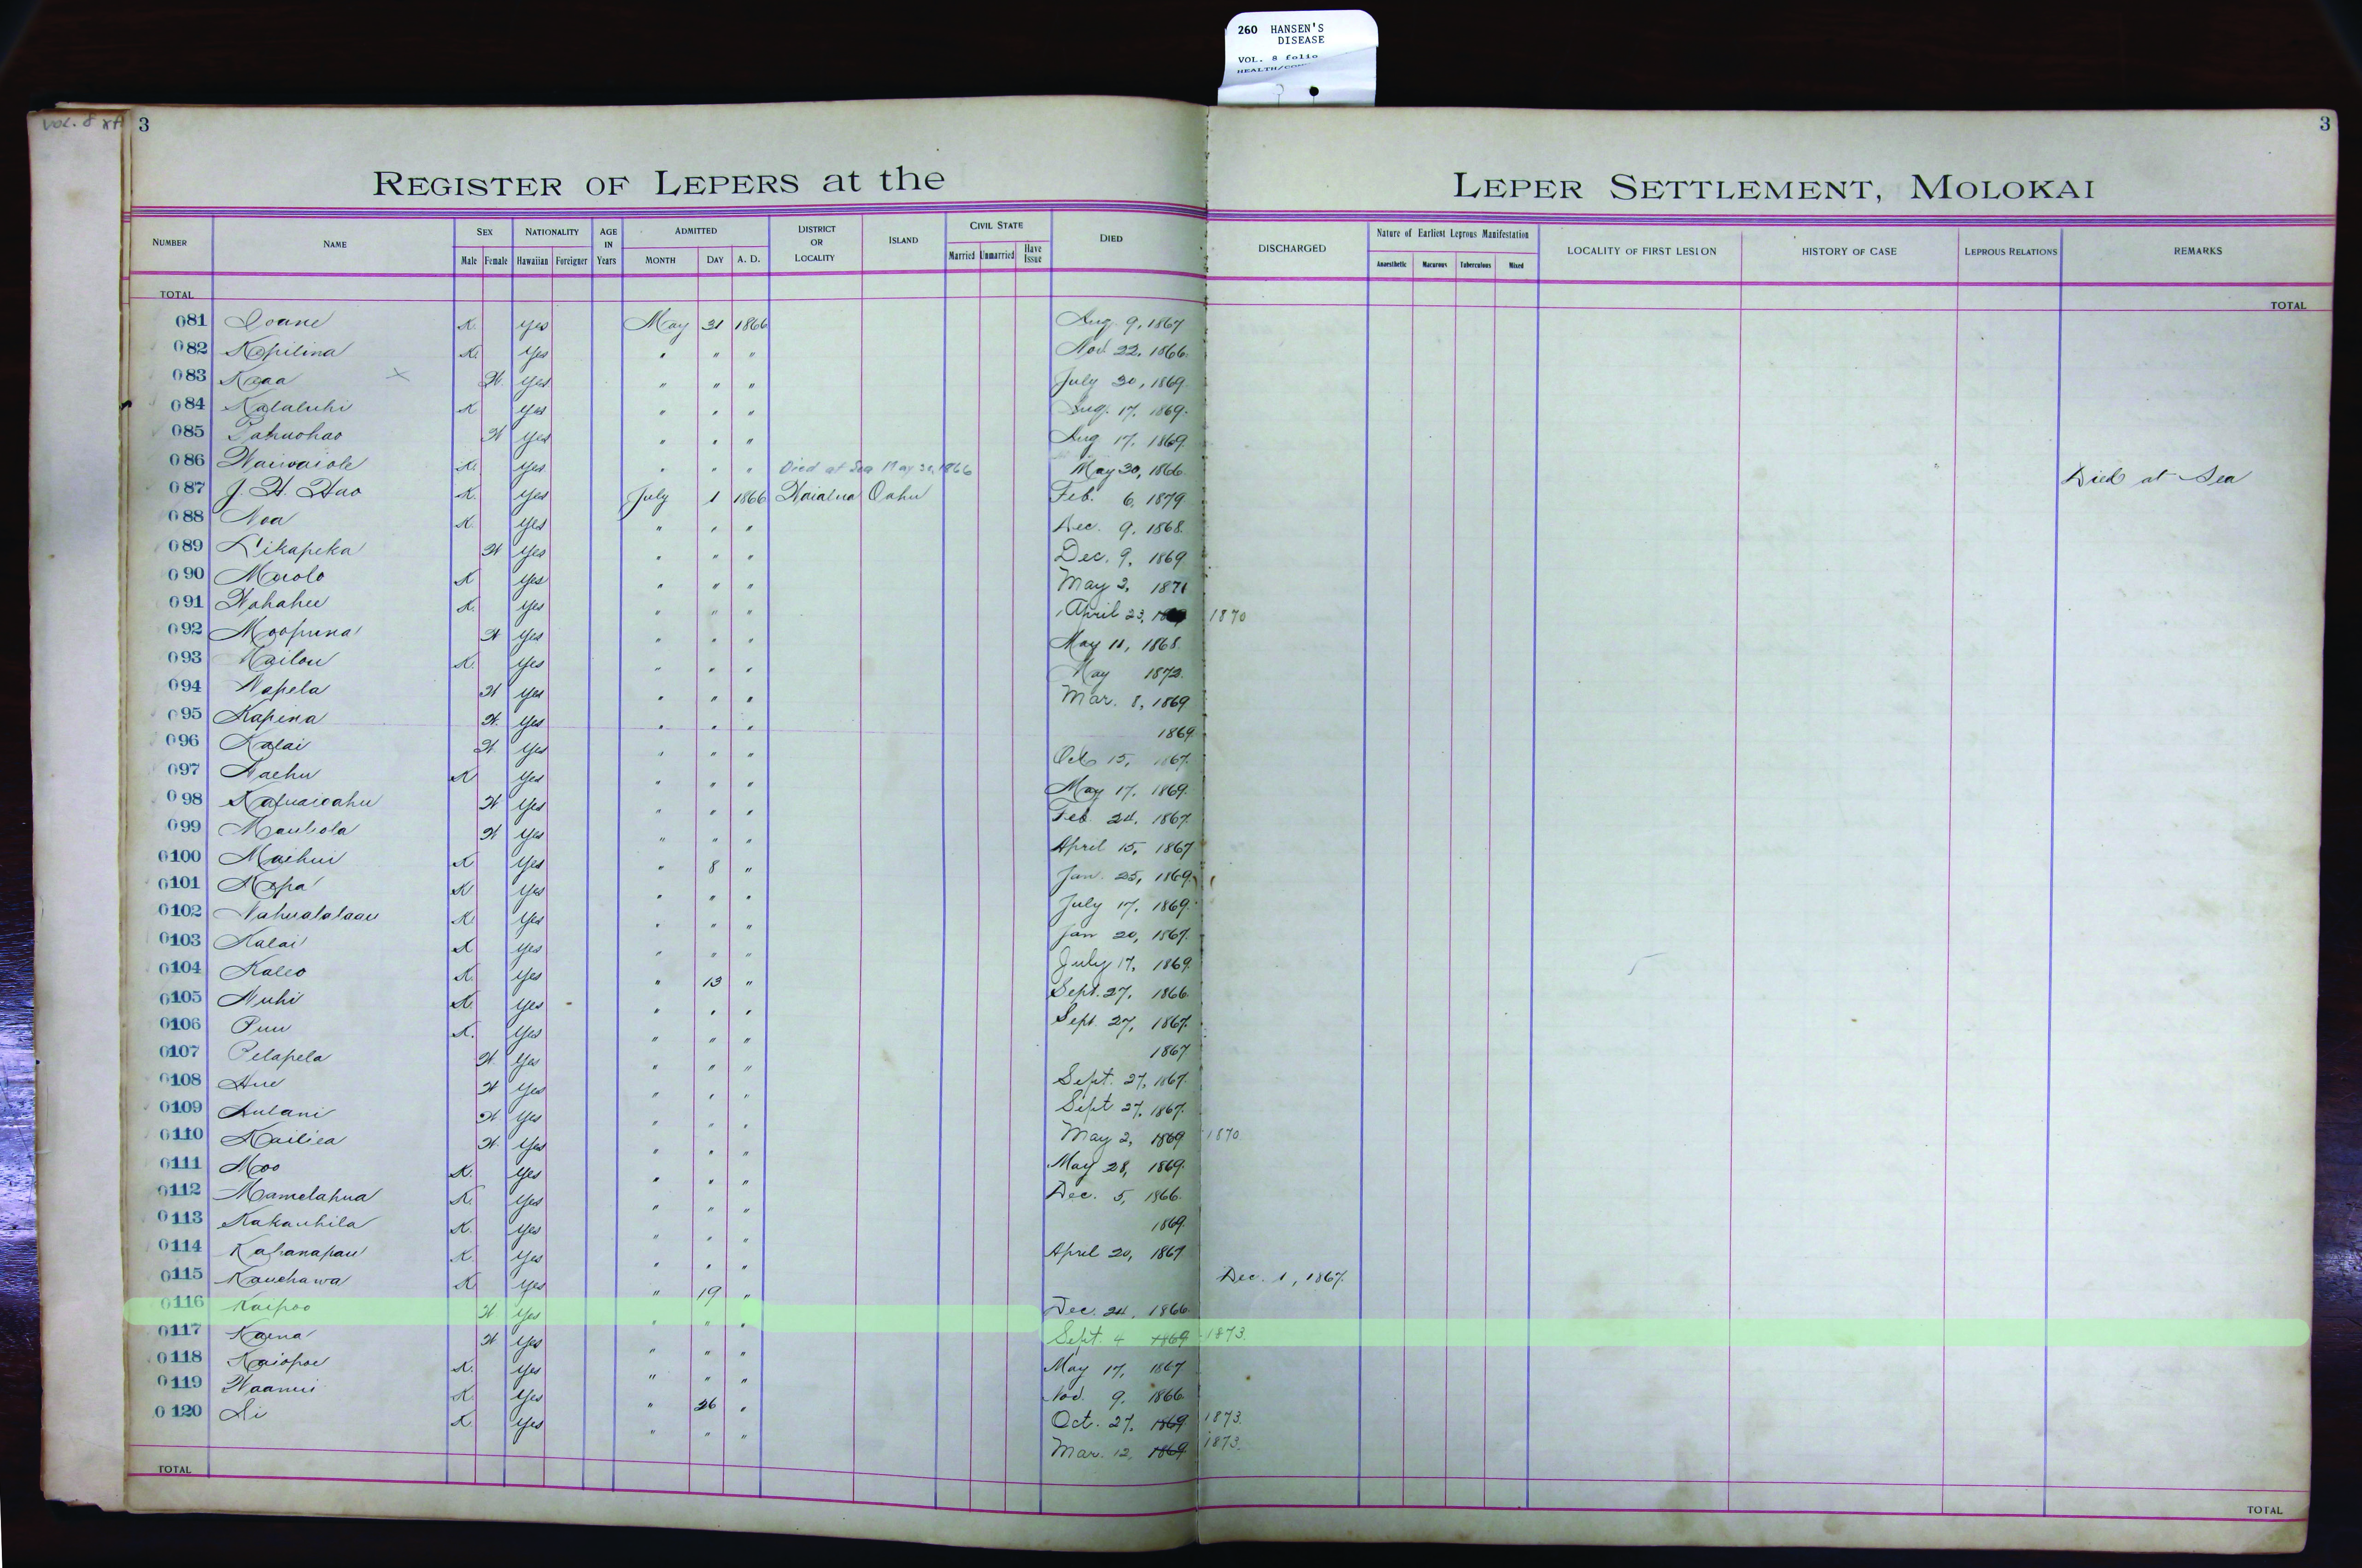 260 HANSEN'S
DISEASE
VOL. 8 folio
VOL. 8
3
3
REGISTER OF LEPERS at the LEPER SETTLEMENT, MOLOKAI
NUMBER NAME SEX NATIONALITY AGE IN Years ADMITTED DISTRICT OR LOCALITY ISLAND CIVIL STATE DIED DISCHARGED Nature of Earliest Leprous Manifestation LOCALITY OF FIRST LESION HISTORY OF CASE LEPROUS RELATIONS REMARKS
Male Female Hawaiian Foreigner MONTH DAY A. D. Married Unmarried Have Issue Anaesthetic Macurous Tuberculous Mixed
TOTAL TOTAL
081 Ioane K. yes May 31 1866 Aug. 9, 1867
082 Kapilina K. Yes " " " Nov. 22, 1866.
083 Kaaa × W. yes " " " July 30, 1869.
084 Kalaluhi K yes " " " Aug. 17, 1869.
085 Pahuohao W yes " " " Aug 17, 1869.
086 Waiwaiole K. yes " " " Died at Sea May 30, 1866 May 30, 1866. Died at Sea
087 J. H. Hao K. yes July 1 1866 Waialua Oahu Feb. 6, 1879
088 Noa K. yes " " " Dec. 9, 1868.
089 Likapeka W yes " " " Dec. 9, 1869.
090 Maolo K yes " " " May 2, 1871
091 Wahahee K. yes " " " April 23, 1870
092 Moopuna W yes " " " May 11, 1868.
093 Kailou K. yes " " " May 1872.
094 Napela W yes " " " Mar. 8, 1869
095 Kapina W. yes " " " 1869.
096 Kalai W. yes " " " Oct 15, 1867.
097 Naehu K yes " " " May 17, 1869.
098 W yes " " " Feb. 24, 1867.
099 Mauliola W yes " " " April 15, 1867
0100 Maehui K yes " 8 " Jan. 25, 1869.
0101 K yes " " " July 17, 1869.
0102 Nahualalaau K. yes " " " Jan 20, 1867.
0103 Kalai K yes " " " July 17, 1869.
0104 Kaleo K. yes " 13 " Sept. 27, 1866.
0105 Nuhi K. yes " " " Sept. 27, 1867.
0106 Puu K. yes " " " 1867
0107 Pelapela W yes " " " Sept. 27, 1867.
0108 Hue W yes " " " Sept 27, 1867.
0109 Aulani W yes " " " May 2, 1869 1870.
0110 Kailiea W. yes " " " May 28, 1869.
0111 Moo K. yes " " " Dec. 5, 1866.
0112 Mamelahua K. yes " " " 1869.
0113 Kakauhila K. yes " " " April 20, 1867
0114 Kahanapau K. yes " " " Dec. 1, 1867.
0115 Kauehawa K yes " 19 " Dec. 24, 1866.
0116 Kaipoo W yes " " " Sept. 4 1869 1873.
0117 Kaena W yes " " " May 17, 1867
0118 Kaiopoe K. yes " " " Nov. 9, 1866.
0119 Waanui K. yes " 26 " Oct. 27, 1869 1873.
0120 Ai K. yes " " " Mar. 12, 1869 1873.
TOTAL TOTAL